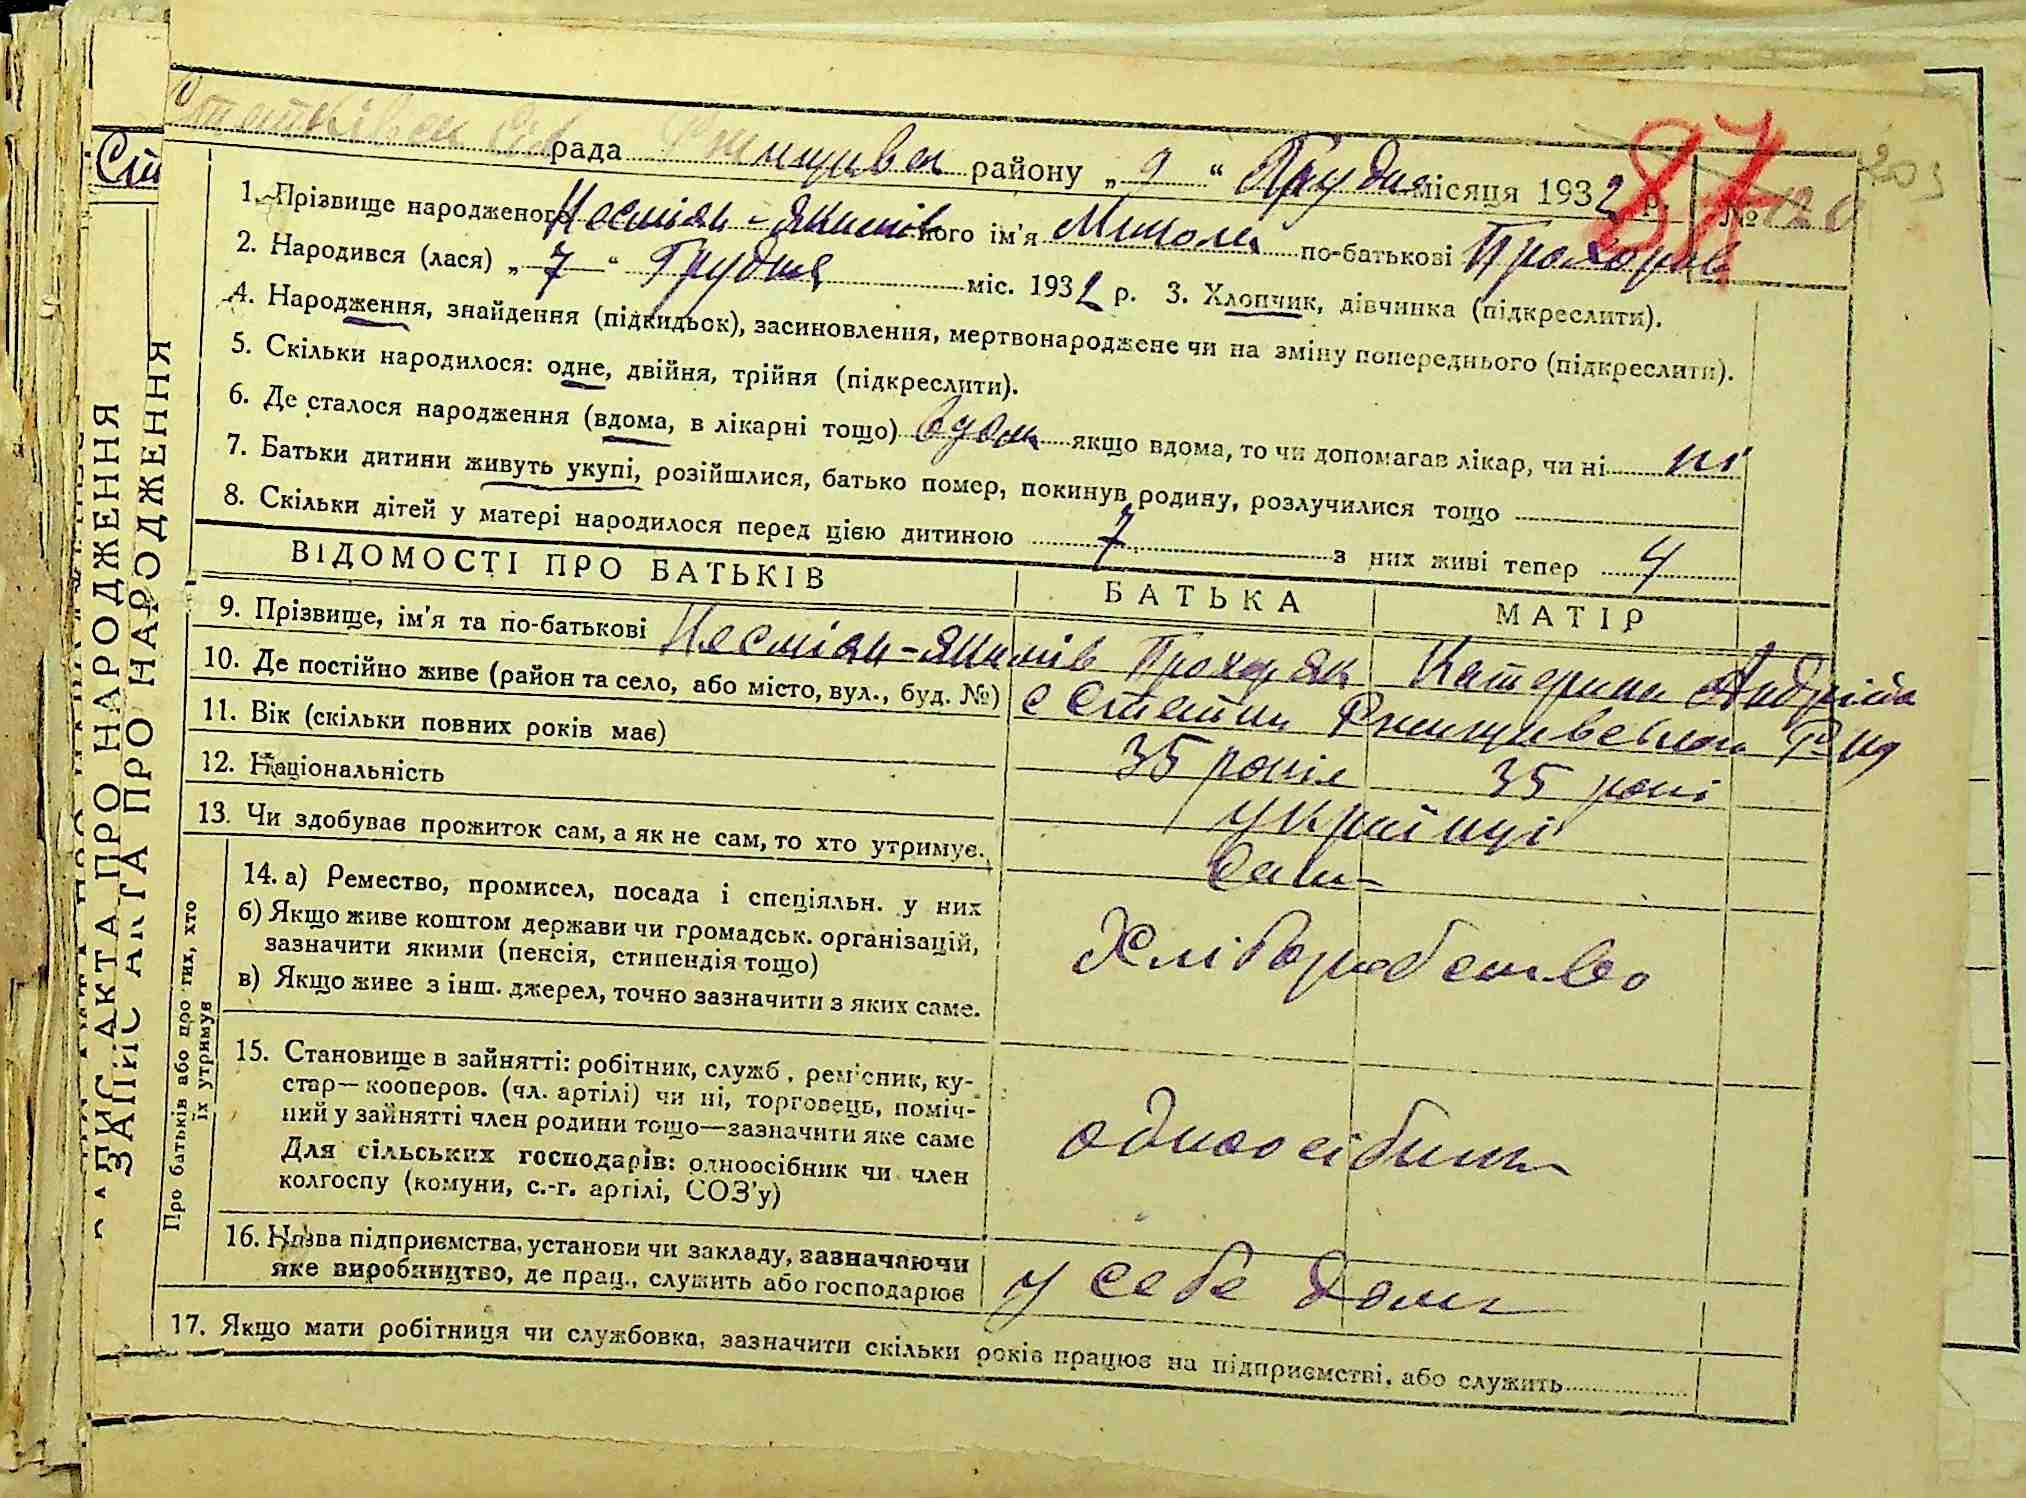 рада Ржищівсь району „9“ Грудня місяця 1932 р. № 120
203
87
1. Прізвище народженого Несміян-Якимів його ім'я Микола по-батькові Прохорів
2. Народився (лася) „7“ Грудня міс. 1932 р. 3. Хлопчик, дівчинка (підкреслити).
4. Народження, знайдення (підкидьок), засиновлення, мертвонароджене чи на зміну попереднього (підкреслити).
5. Скільки народилося: одне, двійня, трійня (підкреслити).
6. Де сталося народження (вдома, в лікарні тощо) вдома якщо вдома, то чи допомагав лікар, чи ні ні
7. Батьки дитини живуть укупі, розійшлися, батько помер, покинув родину, розлучилися тощо
8. Скільки дітей у матері народилося перед цією дитиною 7 з них живі тепер 4
ВІДОМОСТІ ПРО БАТЬКІВ БАТЬКА МАТІР
9. Прізвище, ім'я та по-батькові Несміян-Якимів Прохор Як Катерина Андріїв
10. Де постійно живе (район та село, або місто, вул., буд. №) с Стайки Ржищівськ
11. Вік (скільки повних років має) 35 років 35 рокі
12. Національність українці
13. Чи здобував прожиток сам, а як не сам, то хто утримує. Сам
14. а) Ремество, промисел, посада і спеціяльн. у них
б) Якщо живе коштом держави чи громадськ. організацій,
зазначити якими (пенсія, стипендія тощо)
Хліборобство
в) Якщо живе з інш. джерел, точно зазначити з яких саме.
15. Становище в зайнятті: робітник, служб., рем'сник, ку-
стар—кооперов. (чл. артілі) чи ні, торговець, поміч-
ний у зайнятті член родини тощо—зазначити яке саме
Для сільських господарів: одноосібник чи член
колгоспу (комуни, с.-г. артілі, СОЗ'у)
одноосібник
16. Назва підприємства, установи чи закладу, зазначаючи
яке виробництво, де прац., служить або господарює
у себе дома
17. Якщо мати робітниця чи службовка, зазначити скільки років працює на підприємстві, або служить
Про батьків або про тих, хто
їх утримує
ЗАПИС АКТА ПРО НАРОДЖЕННЯ
ЗАПИС АКТА ПРО НАРОДЖЕННЯ